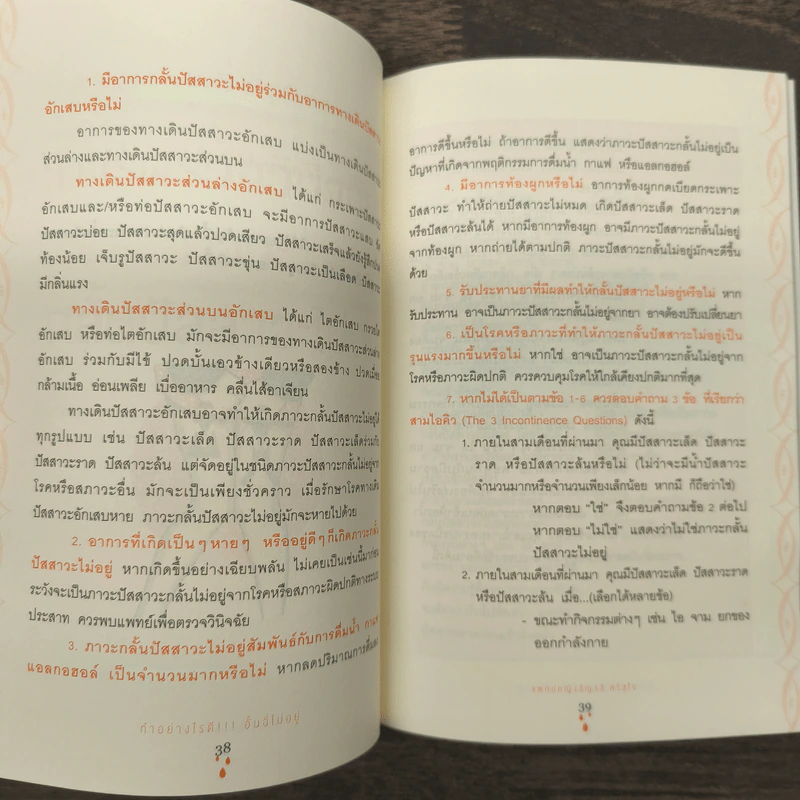 1. มีอาการกลั้นปัสสาวะไม่อยู่ร่วมกับอาการทางเดินปัสสาวะ
อักเสบหรือไม่
อาการของทางเดินปัสสาวะอักเสบ แบ่งเป็นทางเดินปัสสาวะ
ส่วนล่างและทางเดินปัสสาวะส่วนบน
ทางเดินปัสสาวะส่วนล่างอักเสบ ได้แก่ กระเพาะปัสสาวะ
อักเสบและ/หรือท่อปัสสาวะอักเสบ จะมีอาการปัสสาวะแสบ
ปัสสาวะบ่อย ปัสสาวะสุดแล้วปวดเสียว ปัสสาวะเสร็จแล้วยังรู้สึก
ท้องน้อย เจ็บรูปัสสาวะ ปัสสาวะขุ่น ปัสสาวะเป็นเลือด ปัสสาวะ
มีกลิ่นแรง
ทางเดินปัสสาวะส่วนบนอักเสบ ได้แก่ ไตอักเสบ กรวยไต
อักเสบ หรือท่อไตอักเสบ มักจะมีอาการของทางเดินปัสสาวะส่วนล่าง
อักเสบ ร่วมกับมีไข้ ปวดบั้นเอวข้างเดียวหรือสองข้าง ปวดเมื่อย
กล้ามเนื้อ อ่อนเพลีย เบื่ออาหาร คลื่นไส้อาเจียน
ทางเดินปัสสาวะอักเสบอาจทำให้เกิดภาวะกลั้นปัสสาวะไม่อยู่ได้
ทุกรูปแบบ เช่น ปัสสาวะเล็ด ปัสสาวะราด ปัสสาวะเล็ดร่วมกับ
ปัสสาวะราด ปัสสาวะล้น แต่จัดอยู่ในชนิดภาวะปัสสาวะกลั้นไม่อยู่จาก
โรคหรือสภาวะอื่น มักจะเป็นเพียงชั่วคราว เมื่อรักษาโรคทางเดิน
ปัสสาวะอักเสบหาย ภาวะกลั้นปัสสาวะไม่อยู่มักจะหายไปด้วย
2. อาการที่เกิดเป็นๆหายๆ หรืออยู่ดีๆก็เกิดภาวะกลั้น
ปัสสาวะไม่อยู่ หากเกิดขึ้นอย่างเฉียบพลัน ไม่เคยเป็นเช่นนี้มาก่อน
ระวังจะเป็นภาวะปัสสาวะกลั้นไม่อยู่จากโรคหรือสภาวะผิดปกติทางระบบ
ประสาท ควรพบแพทย์เพื่อตรวจวินิจฉัย
3. ภาวะกลั้นปัสสาวะไม่อยู่สัมพันธ์กับการดื่มน้ำ กาแฟ
แอลกอฮอล์ เป็นจำนวนมากหรือไม่ หากลดปริมาณการดื่มลง
ทำอย่างไรดี!!! อั้นฉี่ไม่อยู่
38
อาการดีขึ้นหรือไม่ ถ้าอาการดีขึ้น แสดงว่าภาวะปัสสาวะกลั้นไม่อยู่เป็น
ปัญหาที่เกิดจากพฤติกรรมการดื่มน้ำ กาแฟ หรือแอลกอฮอล์
4. มีอาการท้องผูกหรือไม่ อาการท้องผูกกดเบียดกระเพาะ
ปัสสาวะ ทำให้ถ่ายปัสสาวะไม่หมด เกิดปัสสาวะเล็ด ปัสสาวะราด
หรือปัสสาวะล้นได้ หากมีอาการท้องผูก อาจมีภาวะปัสสาวะกลั้นไม่อยู่
จากท้องผูก หากถ่ายได้ตามปกติ ภาวะปัสสาวะกลั้นไม่อยู่มักจะดีขึ้น
ด้วย
5. รับประทานยาที่มีผลทำให้กลั้นปัสสาวะไม่อยู่หรือไม่ หาก
รับประทาน อาจเป็นภาวะปัสสาวะกลั้นไม่อยู่จากยา อาจต้องปรับเปลี่ยนยา
6. เป็นโรคหรือภาวะที่ทำให้ภาวะกลั้นปัสสาวะไม่อยู่เป็น
รุนแรงมากขึ้นหรือไม่ หากใช่ อาจเป็นภาวะปัสสาวะกลั้นไม่อยู่จาก
โรคหรือภาวะผิดปกติ ควรควบคุมโรคให้ใกล้เคียงปกติมากที่สุด
7. หากไม่ได้เป็นตามข้อ 1-6 ควรตอบคำถาม 3 ข้อ ที่เรียกว่า
สามไอคิว (The 3 Incontinence Questions) ดังนี้
1. ภายในสามเดือนที่ผ่านมา คุณมีปัสสาวะเล็ด ปัสสาวะ
ราด หรือปัสสาวะล้นหรือไม่ (ไม่ว่าจะมีน้ำปัสสาวะ
จำนวนมากหรือจำนวนเพียงเล็กน้อย หากมี ก็ถือว่าใช่)
หากตอบ "ใช่" จึงตอบคำถามข้อ 2 ต่อไป
หากตอบ "ไม่ใช่" แสดงว่าไม่ใช่ภาวะกลั้น
ปัสสาวะไม่อยู่
2. ภายในสามเดือนที่ผ่านมา คุณมีปัสสาวะเล็ด ปัสสาวะราด
หรือปัสสาวะล้น เมื่อ...(เลือกได้หลายข้อ)
- ขณะทำกิจกรรมต่างๆ เช่น ไอ จาม ยกของ
ออกกำลังกาย
39